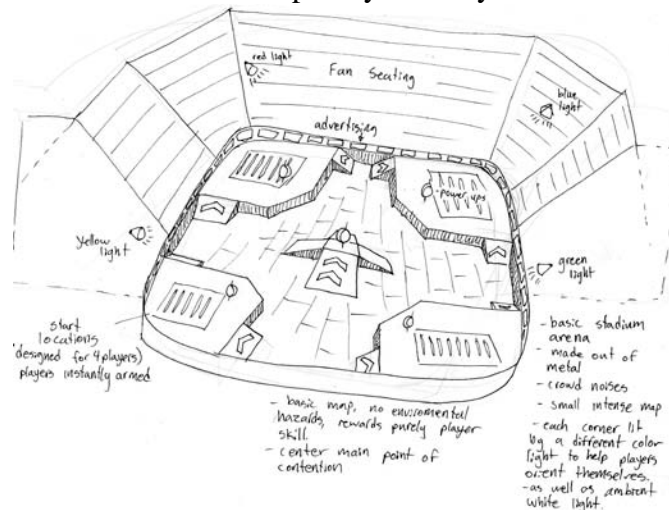 red light
Fan Seating
blue
light
advertising
power ups
yellow
light
green
light
start
locations
(designed for 4 players)
players instantly armed
- basic map, no enviromental
hazards, rewards purely player
skill.
- center main point of
contention
- basic stadium
arena
- made out of
metal
- crowd noises
- small intense map
- each corner lit
by a different color
light to help players
orient themselves.
- as well as ambient
white light.